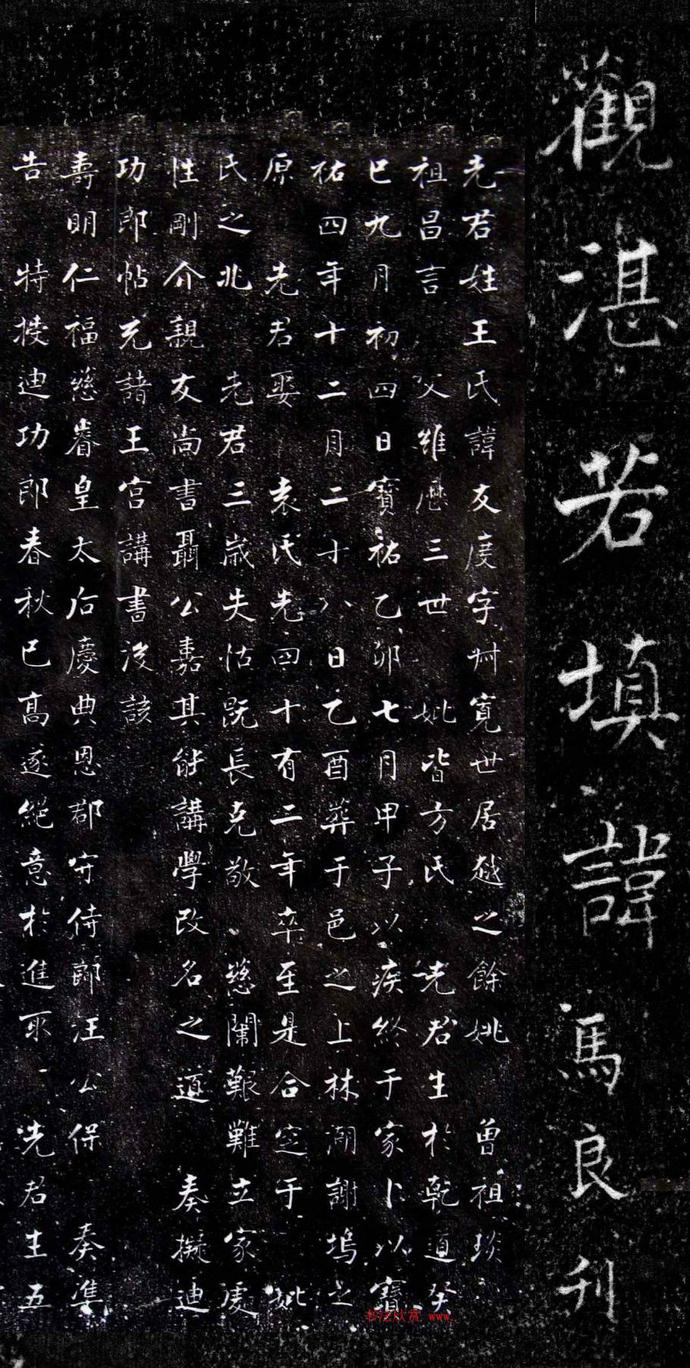 觀湛若填諱 馬良刊
先君姓王氏諱友度字寬世居越之餘姚 曾祖
祖昌言 父維厯三世 妣皆方氏 先君生於乾道癸
巳九月初四日寶祐乙卯七月甲子以疾終于家卜以寶
祐四年十二月二十八日乙酉葬于邑之上林湖謝塢之
原 先君娶 袁氏先四十有二年卒至是合窆于 妣
氏之兆 先君三歲失怙既長克敬 慈闈艱難立家處
性剛介親友尚書聶公嘉其能講學改名之道 奏擬迪
功郎帖充諸王宮講書後該
壽明仁福慈睿皇太后慶典恩郡守侍郎汪公保 奏準
告 特授迪功郎春秋已高遂絕意於進取 先君生五
书法欣赏 www.